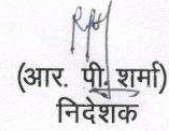 (आर. पी. शर्मा)
निदेशक